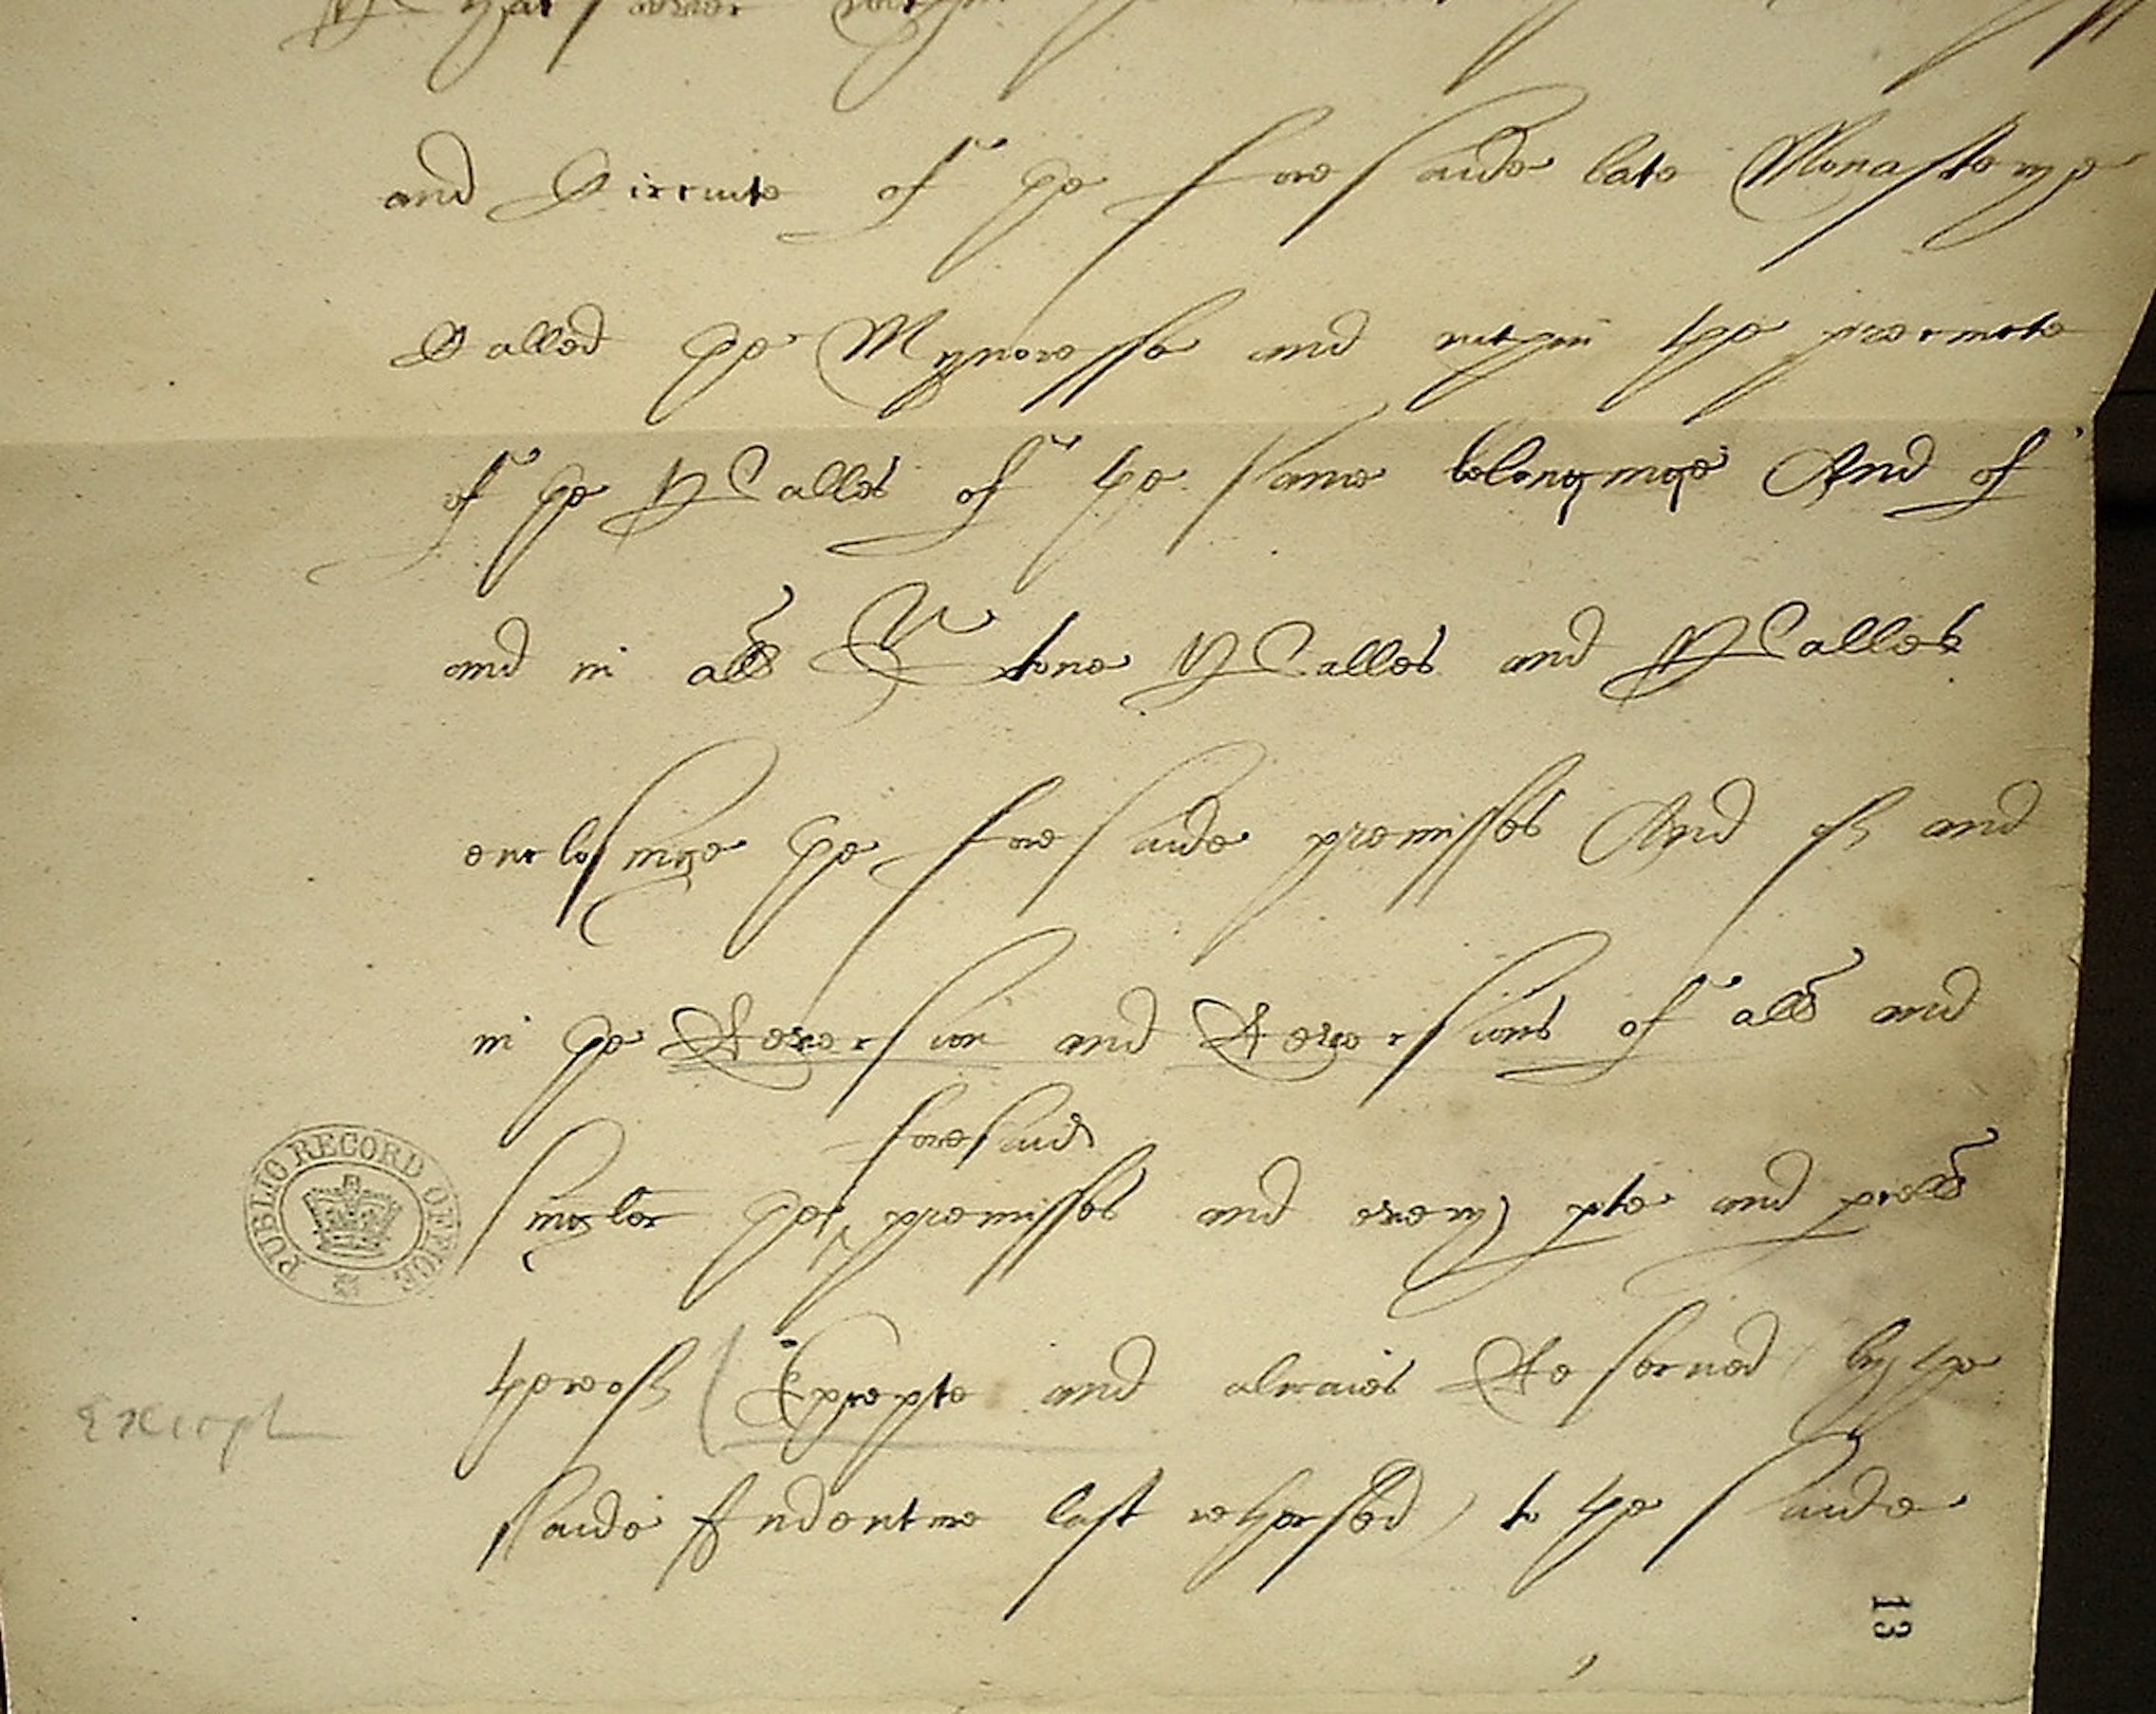 and Circuite of the foresaide late Monasterye
Called the Mynoresse and within the precincte
of the Walles of the same belonginge And of
and in all Stone Walles and Walles
enclosinge the foresaide premisses And of and
in the Reversion and Reversions of all and
foresaid
singler the premisses and every pte and pcell
thereof (Excepte and alwaies Reserved by the
Except
saide Indenture last rehersed) to the saide
PUBLIC RECORD OFFICE
13